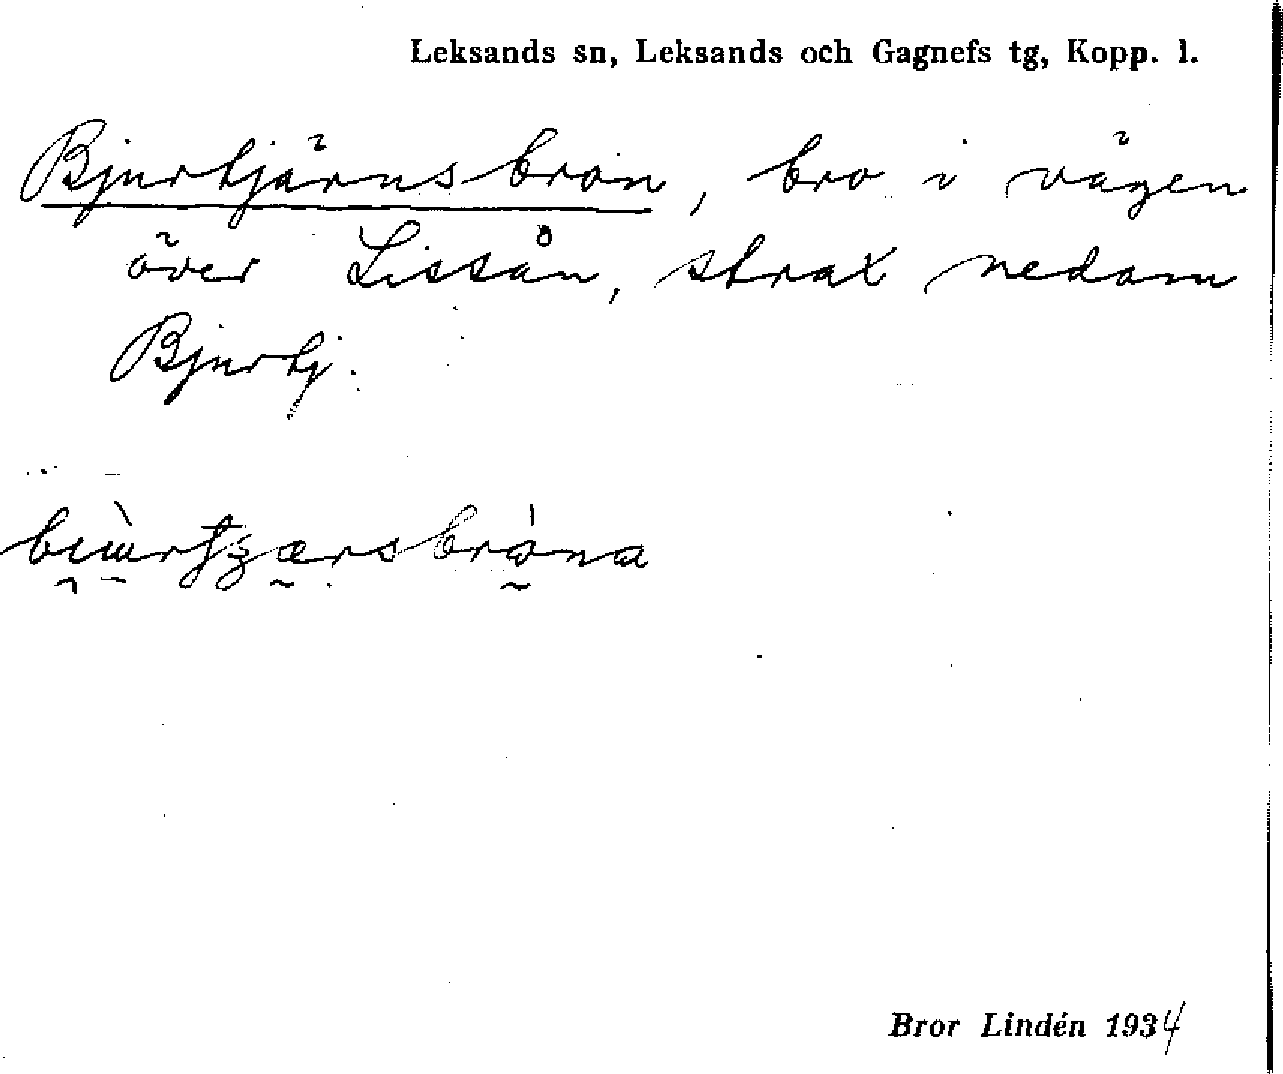 Leksands sn, Leksands och Gagnefs tg, Kopp. l.
Bjurtjärnsbron, bro i vägen
över Lissån, strax nedom
Bjurtj.
Bror Lindén 1934